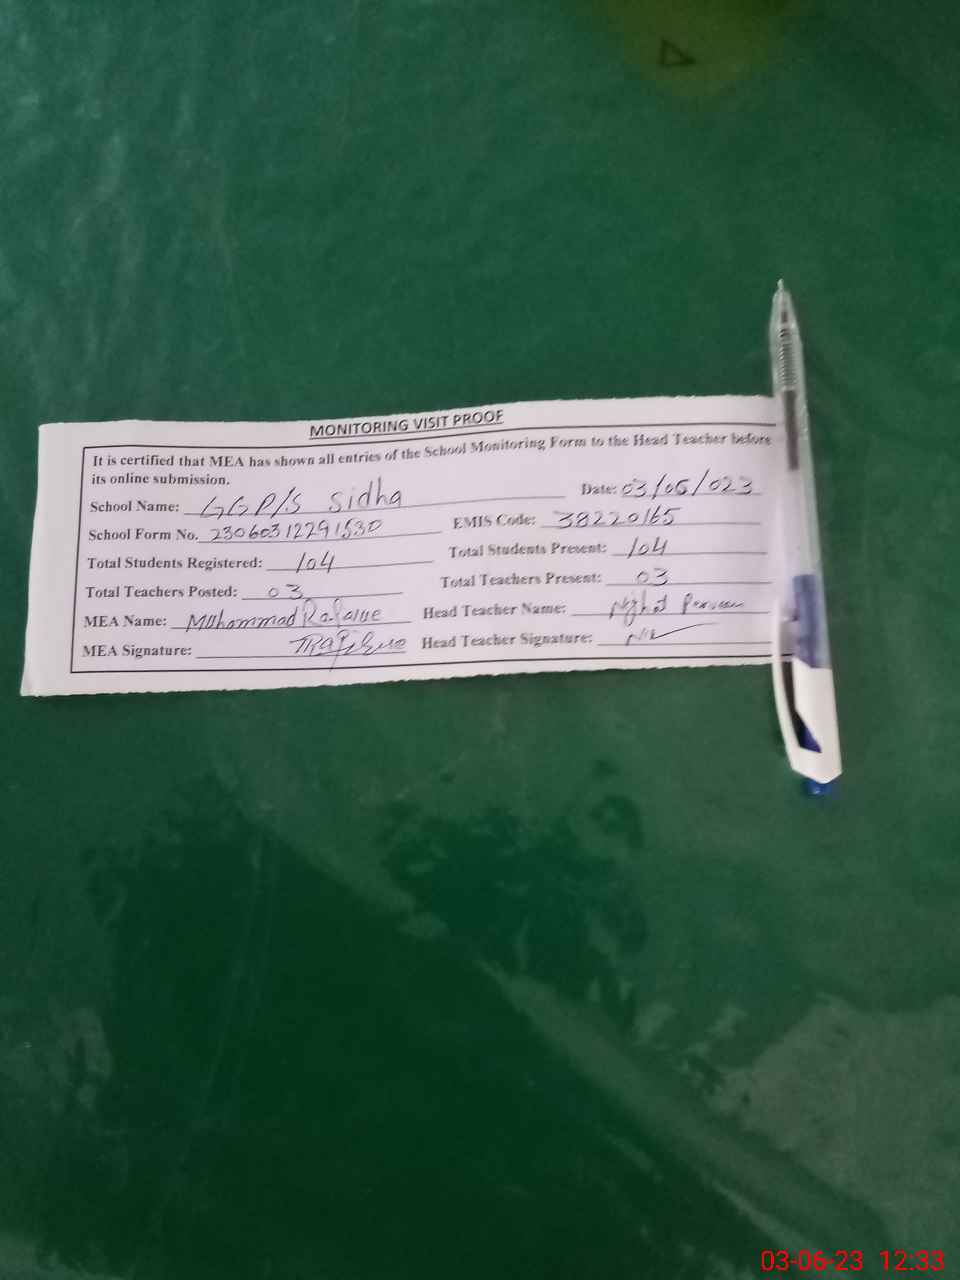 MONITORING VISIT PROOF
It is certified that MEA has shown all entries of the School Monitoring Form to the Head Teacher before
its online submission.
School Name: GGP/S Sidha Date: 03/06/023
School Form No. 23060312291530 EMIS Code: 38220165
Total Students Registered: 104 Total Students Present: 104
Total Teachers Posted: 03 Total Teachers Present: 03
MEA Name: Muhammad Head Teacher Name: Nighat Perveen
MEA Signature: Head Teacher Signature:
03-06-23 12:33